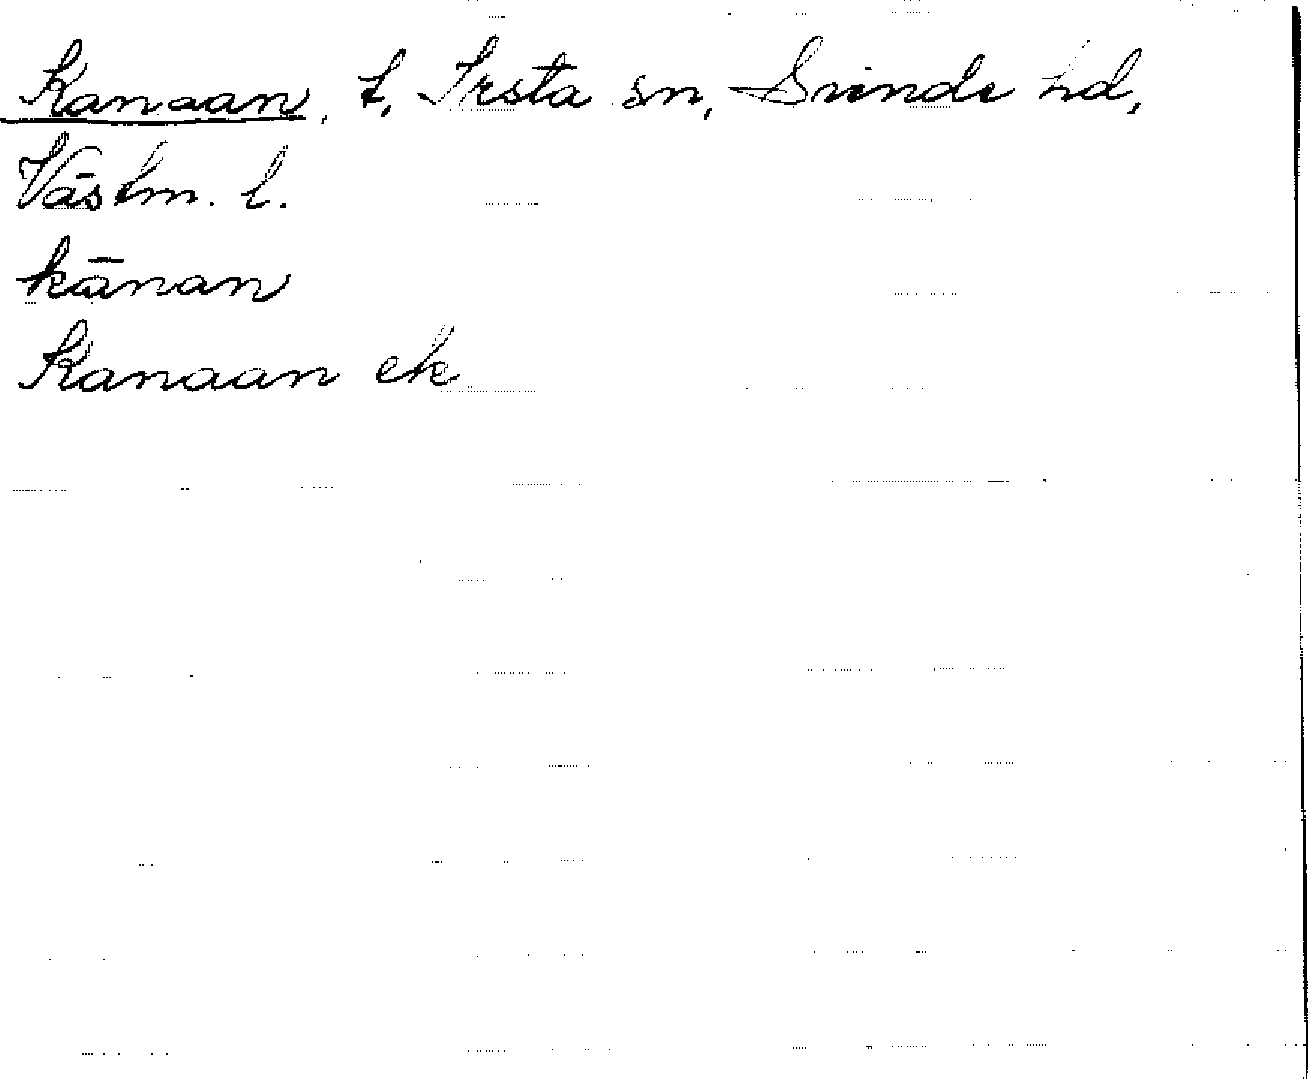 Kanaan, t, Irsta sn, Siende hd,
Västm. l.
kānan
Kanaan ek